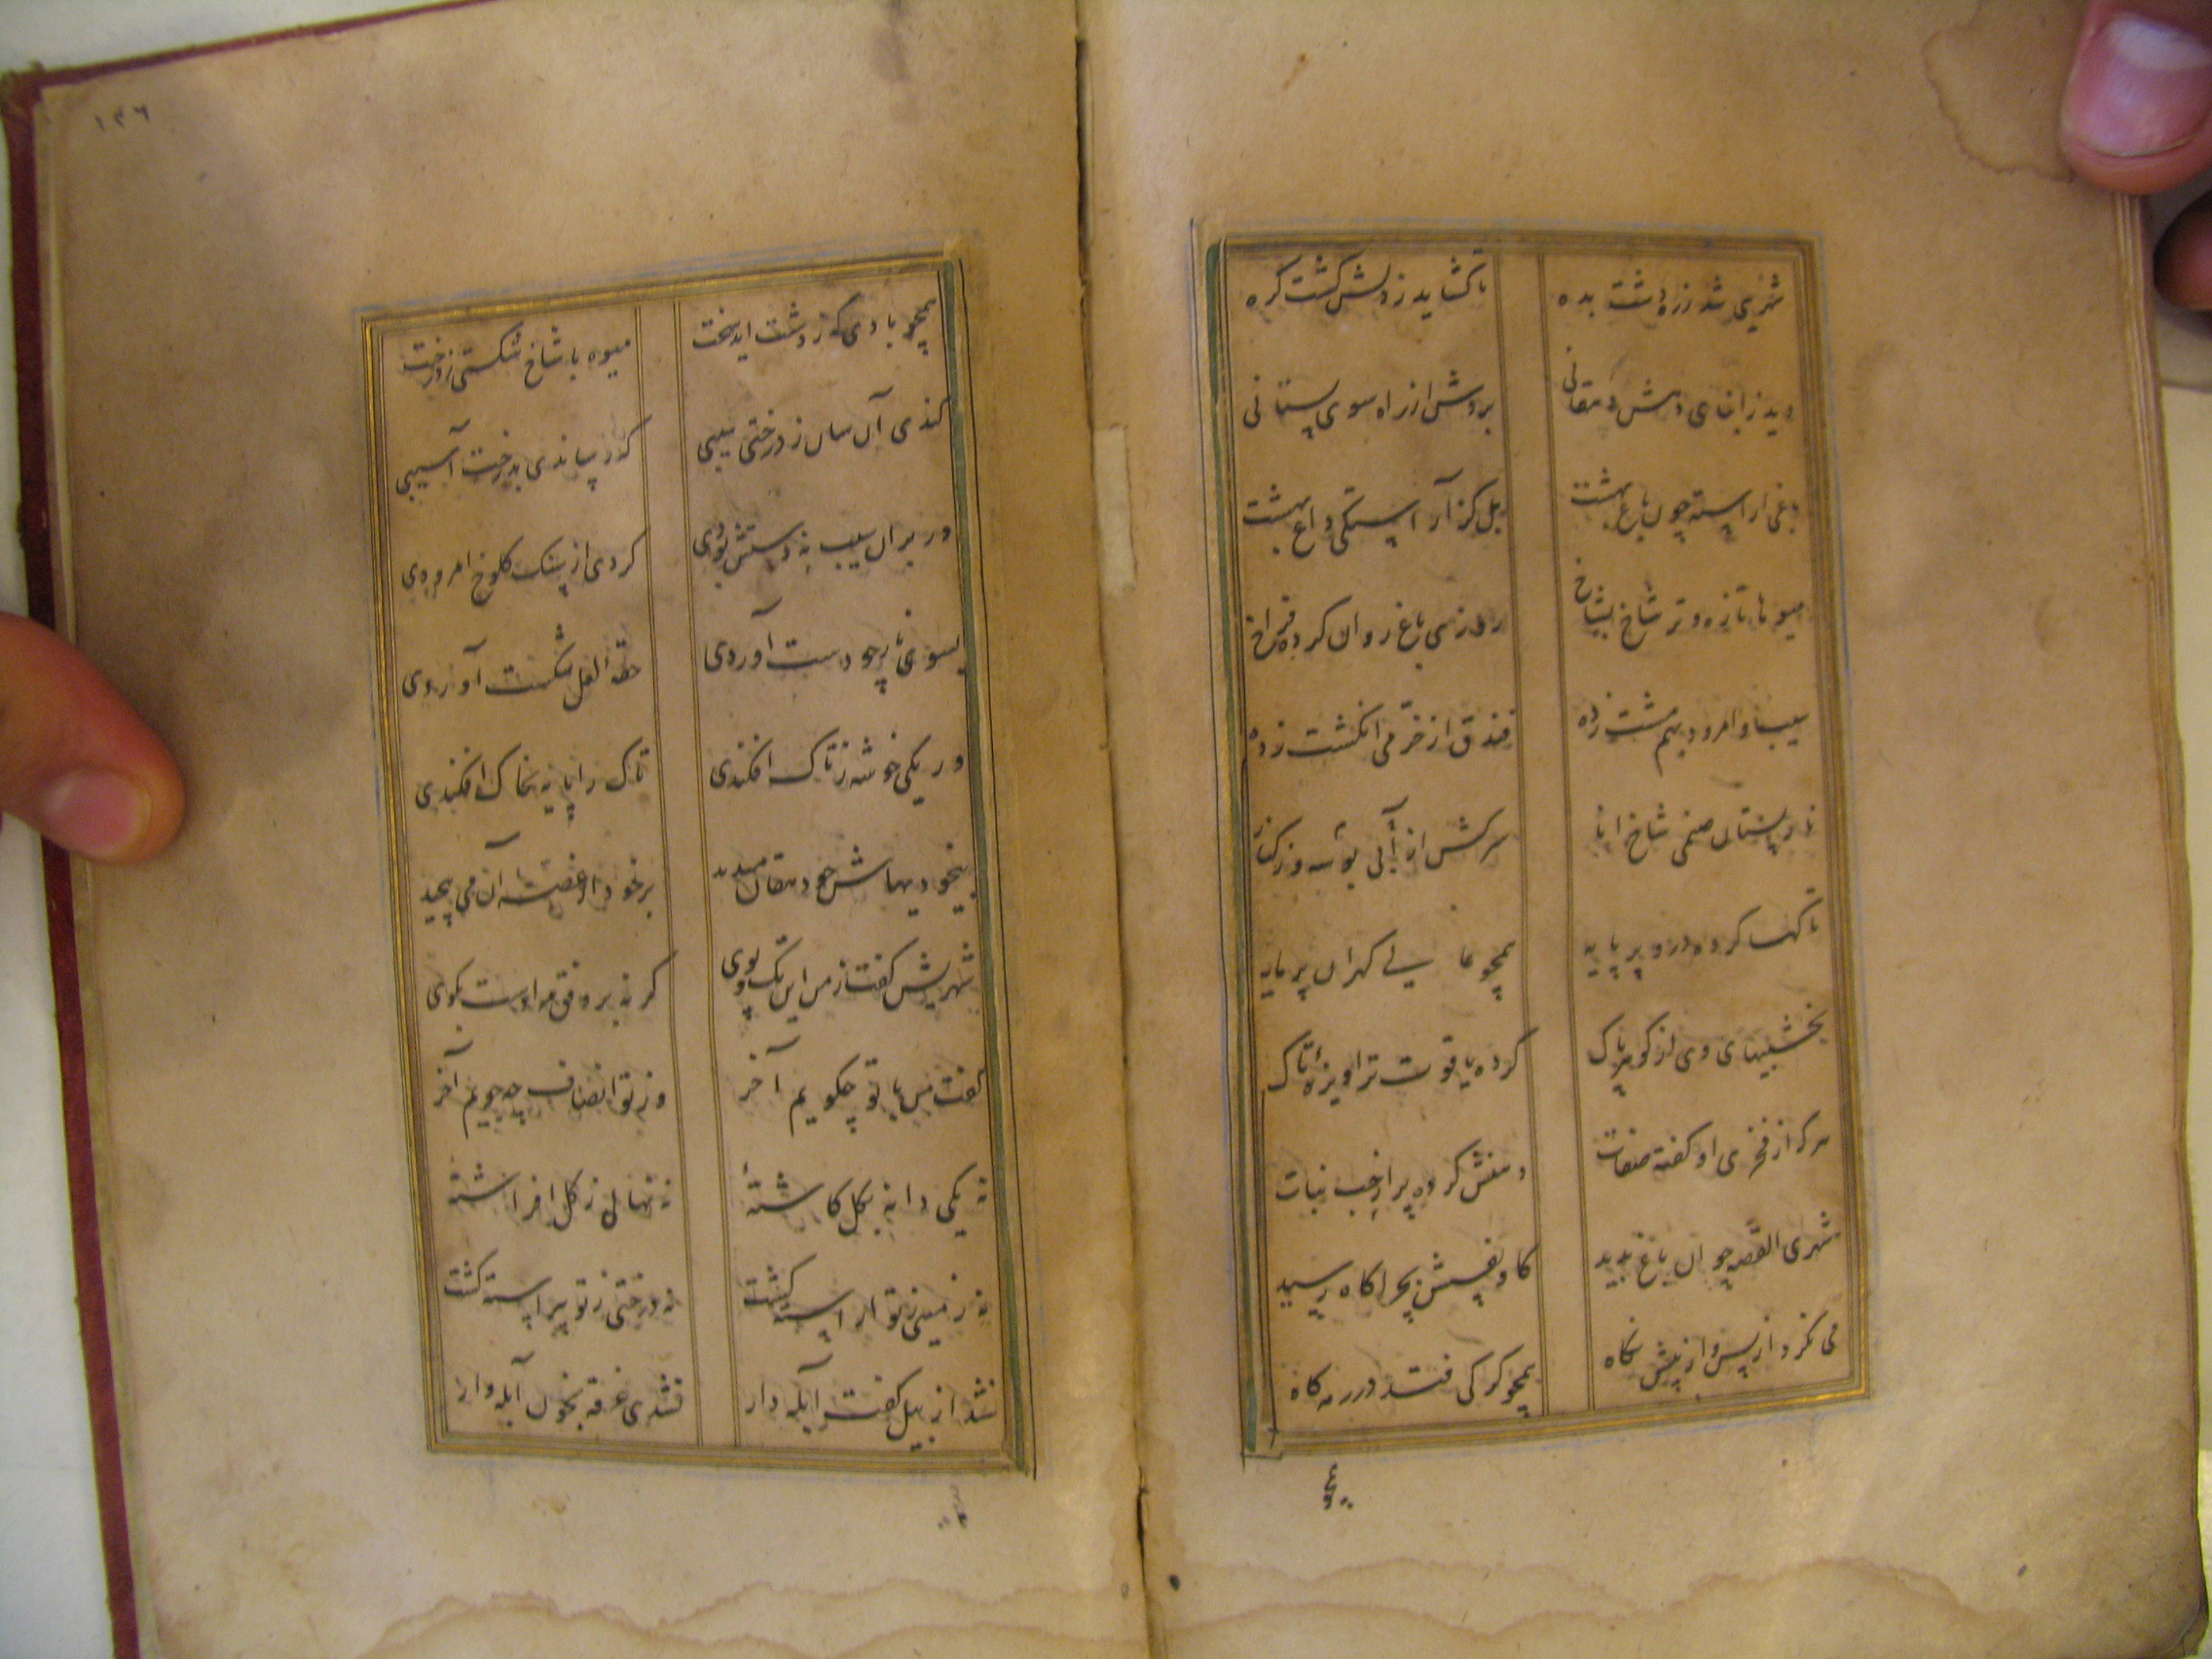 شهریی شد ز ره دشت بده
تا کشاید ز دلش کشت کره
دید ز ابنای دهش دهقانی
بردش از راه سوی بستانی
باغی اراسته چون باغ بهشت
بل کز آراستکی داغ بهشت
میوها تازه و تر شاخ بشاخ
روزی باغ روان کرده فراخ
سیب و امرود بهم مشت زده
فندق از خرمی انکشت زده
نار پستان صنمی شاخ انار
سرکش از آبی بوس و ز کنار
تاکها کرده درو پر پایه
همچو عالی کهران پر مایه
بخششهای وی از کوهر پاک
کرده یاقوت تر اویزه تاک
هر که از فخری او کفته صفات
دهنش کرده پر از حب نبات
شهری القصه چو ان باغ بدید
کاو نفسش بچراکاه رسید
می نکرد از پس و از پیش نکاه
همچو کرکی فتد در رمه کاه
۱۳۶
همچو بادی که ز دشت اید سخت
میوه با شاخ شکستی ز درخت
کندی آن سان ز درختی سیبی
که رسیاندی بدرخت آسیبی
ور بران سیب نه دستش بودی
کردی از سنک کلوخ امرودی
سوی نار چو دست آوردی
حقه لعل شکست آوردی
ور یکی خوشه ز تاک افکندی
تاک را پایه بخاک افکندی
بیخودیهاش چو دهقان میدید
بر خود از غصه آن می پیچید
شهریش کفت ز من این تک و پوی
کر نه بر وفق مراد است بکوی
کفت من با تو چکویم آخر
وز تو انصاف چه جویم آخر
نه یکی دانه بکل کاشته
نه نهالی ز کل افراشته
نه زمینی ز تو اراسته کشت
نه درختی ز تو پیراسته کشت
نشد از بیل کفت آبله دار
نشدی غرقه بخون آبله وار